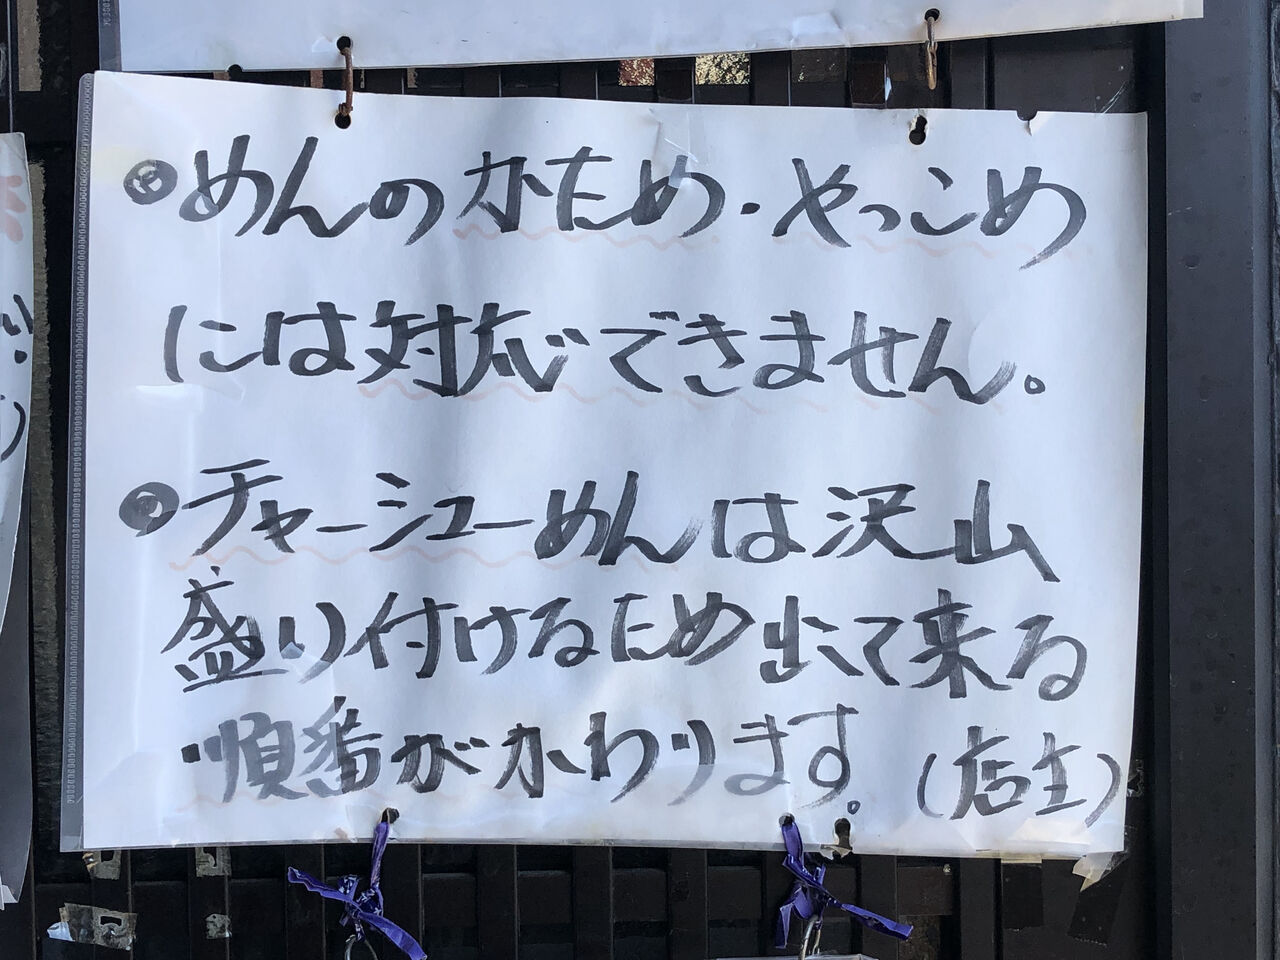 ◉めんのかため・やっこめ
には対応できません。
◉チャーシューめんは沢山
盛り付けるため出て来る
・順番がかわります。(店主)